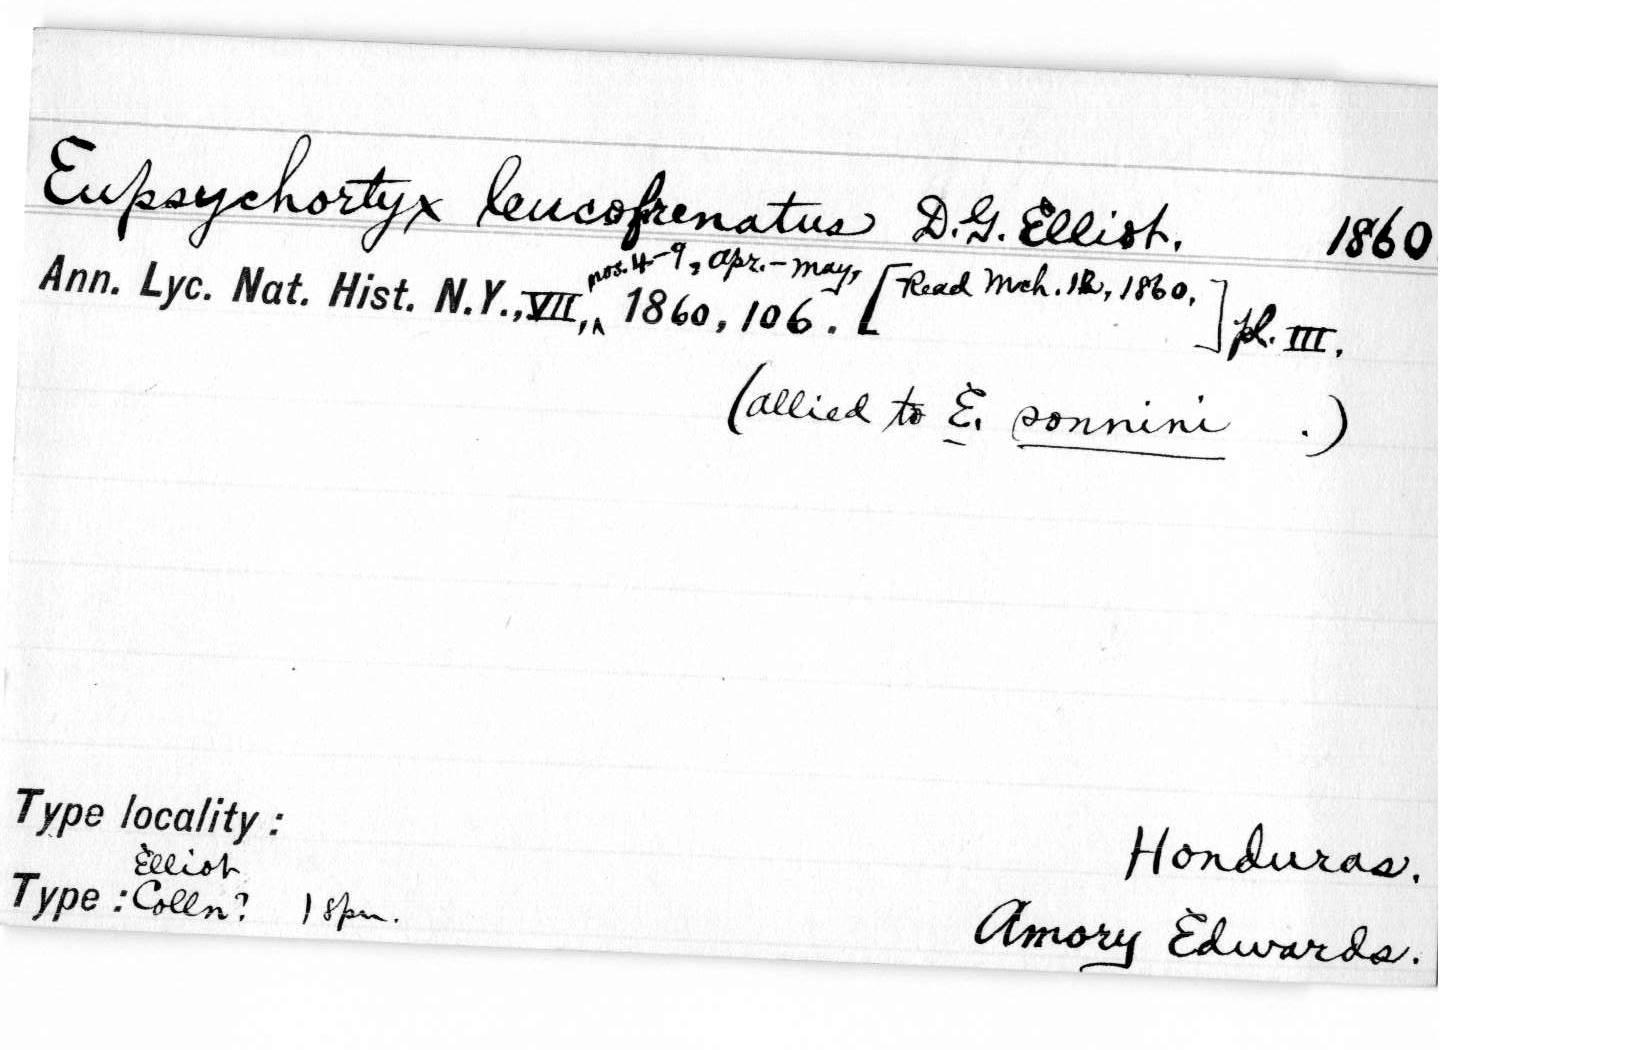 Eupsychortyx leucofrenatus D.G. Elliot. 1860
nos. 4-9, Apr.-May,
Ann. Lyc. Nat. Hist. N.Y., VII, 1860, 106. [Read Mch. 12, 1860.] pl. III.
(allied to E. sonnini .)
Type locality: Honduras.
Elliot
Type: Colln? 1 spm. Amory Edwards.